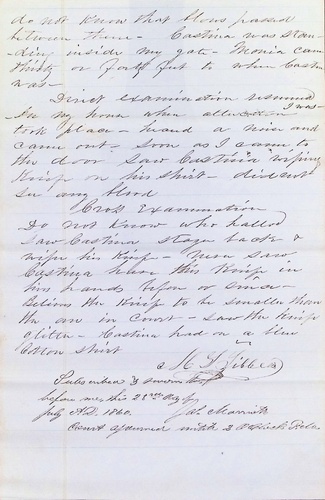 do not know that blows passed
between them - Castina was stan-
ding inside my gate - Maria came
thirty or forty feet to where Castina
was -
Direct examination resumed
In my house when altercation I was -
took place - heard a noise and
came out - soon as I came to
the door saw Castina wiping
Knife on his shirt - did not
see any blood
Cross Examination
Do not know who hallod
Saw Castina stager back &
wipe his Knife - Never saw
Castina have this Knife in
his hands before or since -
Believe the Knife to be smaller than
the one in court - saw the Knife
glitter - Castina had on a blue
Cotton shirt
Subscribed & sworn to
before me this 21st day of
July A.D. 1860.
Court adjourned until 2 o'clock